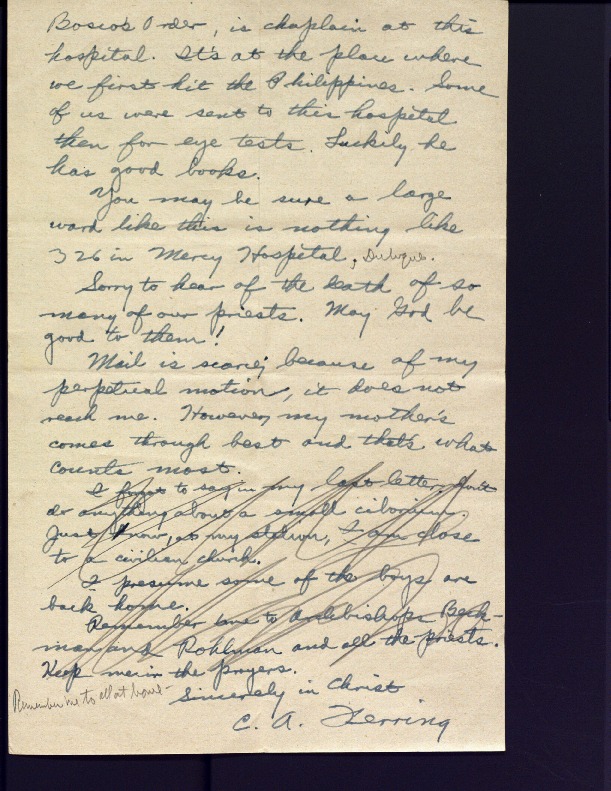 Bosco's Order, is chaplain at this
hospital. It's at the place where
we first hit the Philippines. Some
of us were sent to this hospital
then for eye tests. Luckily he
has good books.
You may be sure a large
ward like this is nothing like
326 in Mercy Hospital, Dubuque.
Sorry to hear of the death of so
many of our priests. May God be
good to them!
Mail is scarce, because of my
perpetual motion, it does not
reach me. However, my mother's
comes through best and that's what
counts most.
I forgot to say in my last letter, don't
do anything about a small ciborium.
Just now, at my station, I am close
to a civilian church.
I presume some of the boys are
back home.
Remember me to Archbishops Beck-
man and Rohlman and all the priests.
Keep me in the prayers.
Remember me to all at home -
Sincerely in Christ
C. A. Herring